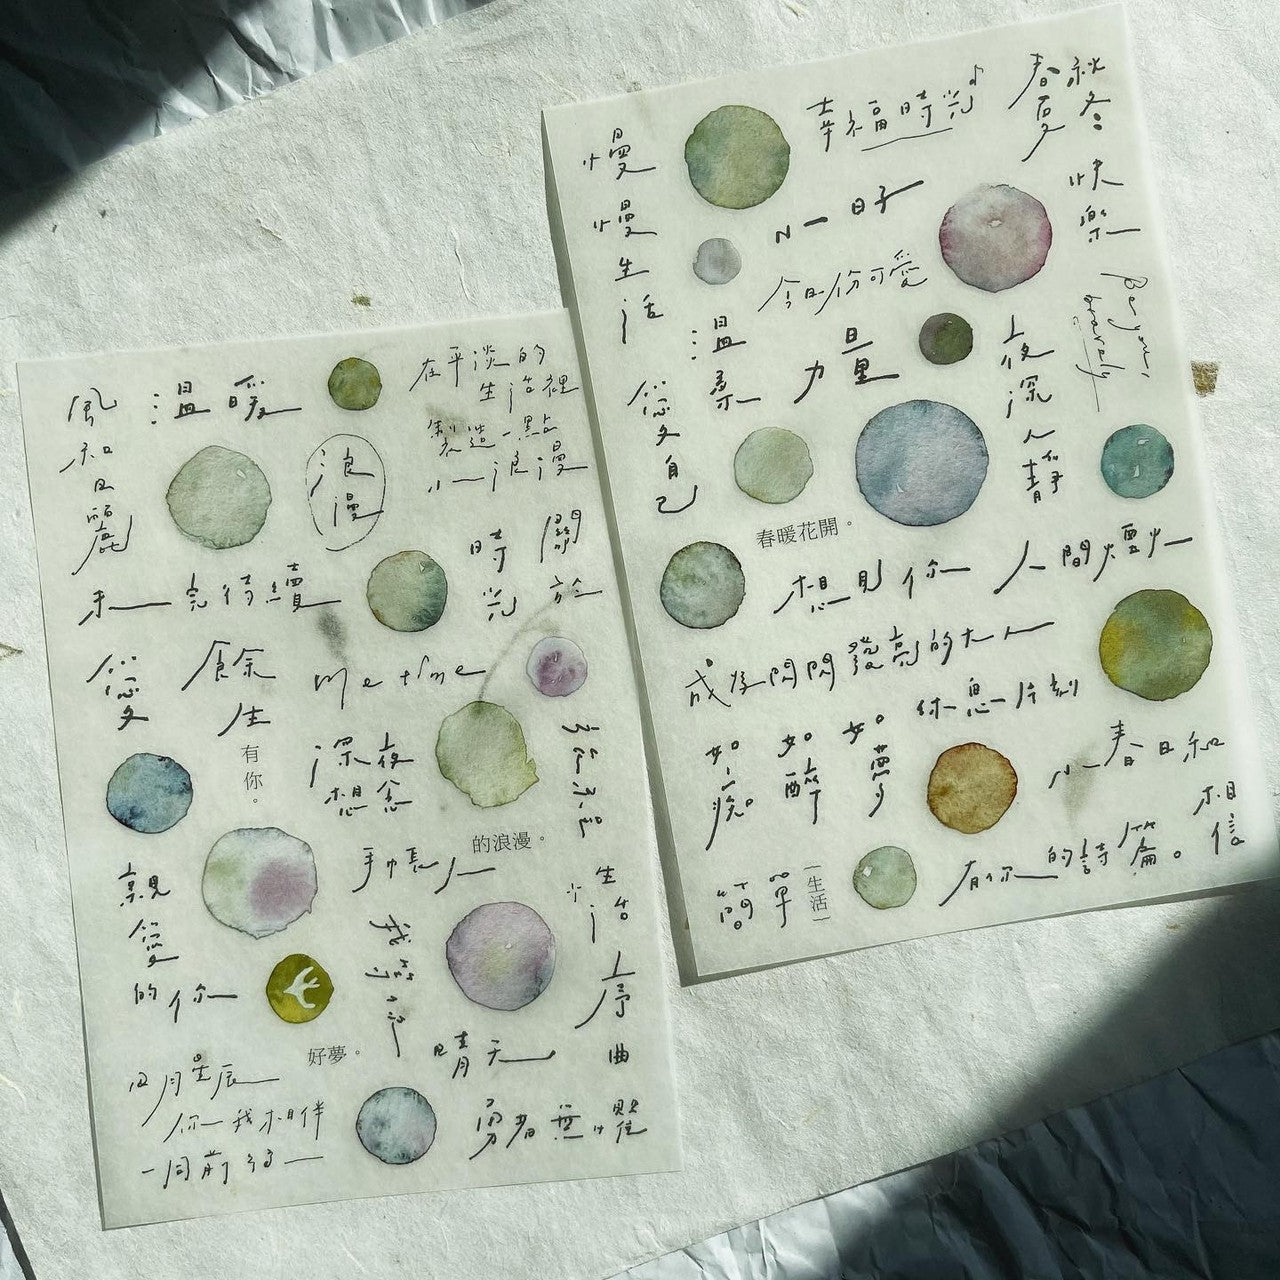 風和日麗
溫暖
在平淡的
生活裡
製造一點
小小浪漫
浪漫
未完待續
時光
關於
戀愛
餘生
me time
有你。
深夜
想念
的浪漫。
手帳人
親愛的你
生活
序曲
好夢。
晴天
日月星辰
你我相伴
一同前行
勇者無懼
慢慢生活
幸福時光♪
春夏秋冬
N一日子
快樂
今日份可愛
Be you,
bravely
溫柔
力量
夜深人靜
戀愛自己
春暖花開。
想見你
人間煙火
成為閃閃發亮的大人
休息一片刻
如痴
如醉
如夢
小春日和
相信
簡單
生活
有你的詩篇。